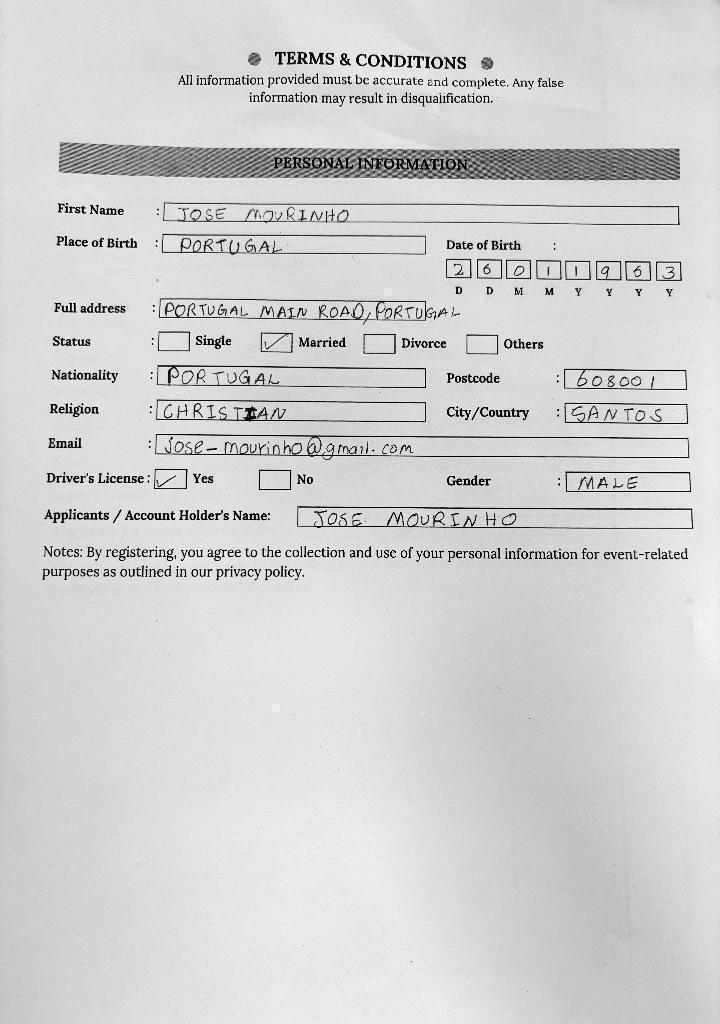 TERMS & CONDITIONS
All information provided must be accurate and complete. Any false
information may result in disqualification.
PERSONAL INFORMATION
First Name : JOSE MOURINHO
Place of Birth : PORTUGAL Date of Birth :
2 6 0 1 1 9 6 3
D D M M Y Y Y Y
Full address : PORTUGAL MAIN ROAD, PORTUGAL
Status : Single ✓ Married Divorce Others
Nationality : PORTUGAL Postcode : 608001
Religion : CHRISTIAN City/Country : SANTOS
Email : Jose-mourinho@gmail.com
Driver's License : ✓ Yes No Gender : MALE
Applicants / Account Holder's Name: JOSE MOURINHO
Notes: By registering, you agree to the collection and use of your personal information for event-related
purposes as outlined in our privacy policy.